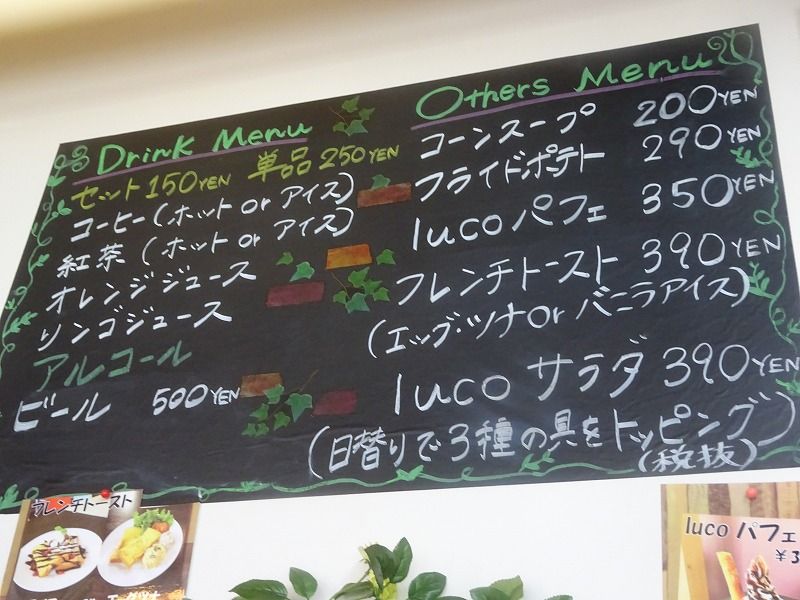 Drink Menu
セット 150YEN 単品 250YEN
コーヒー(ホット or アイス)
紅茶 (ホット or アイス)
オレンジジュース
リンゴジュース
アルコール
ビール 500YEN
Others Menu
コーンスープ 200YEN
フライドポテト 290YEN
luco パフェ 350YEN
フレンチトースト 390YEN
(エッグ・ツナ or バニラアイス)
luco サラダ 390YEN
(日替りで3種の具をトッピング)
(税抜)
フレンチトースト
luco パフェ